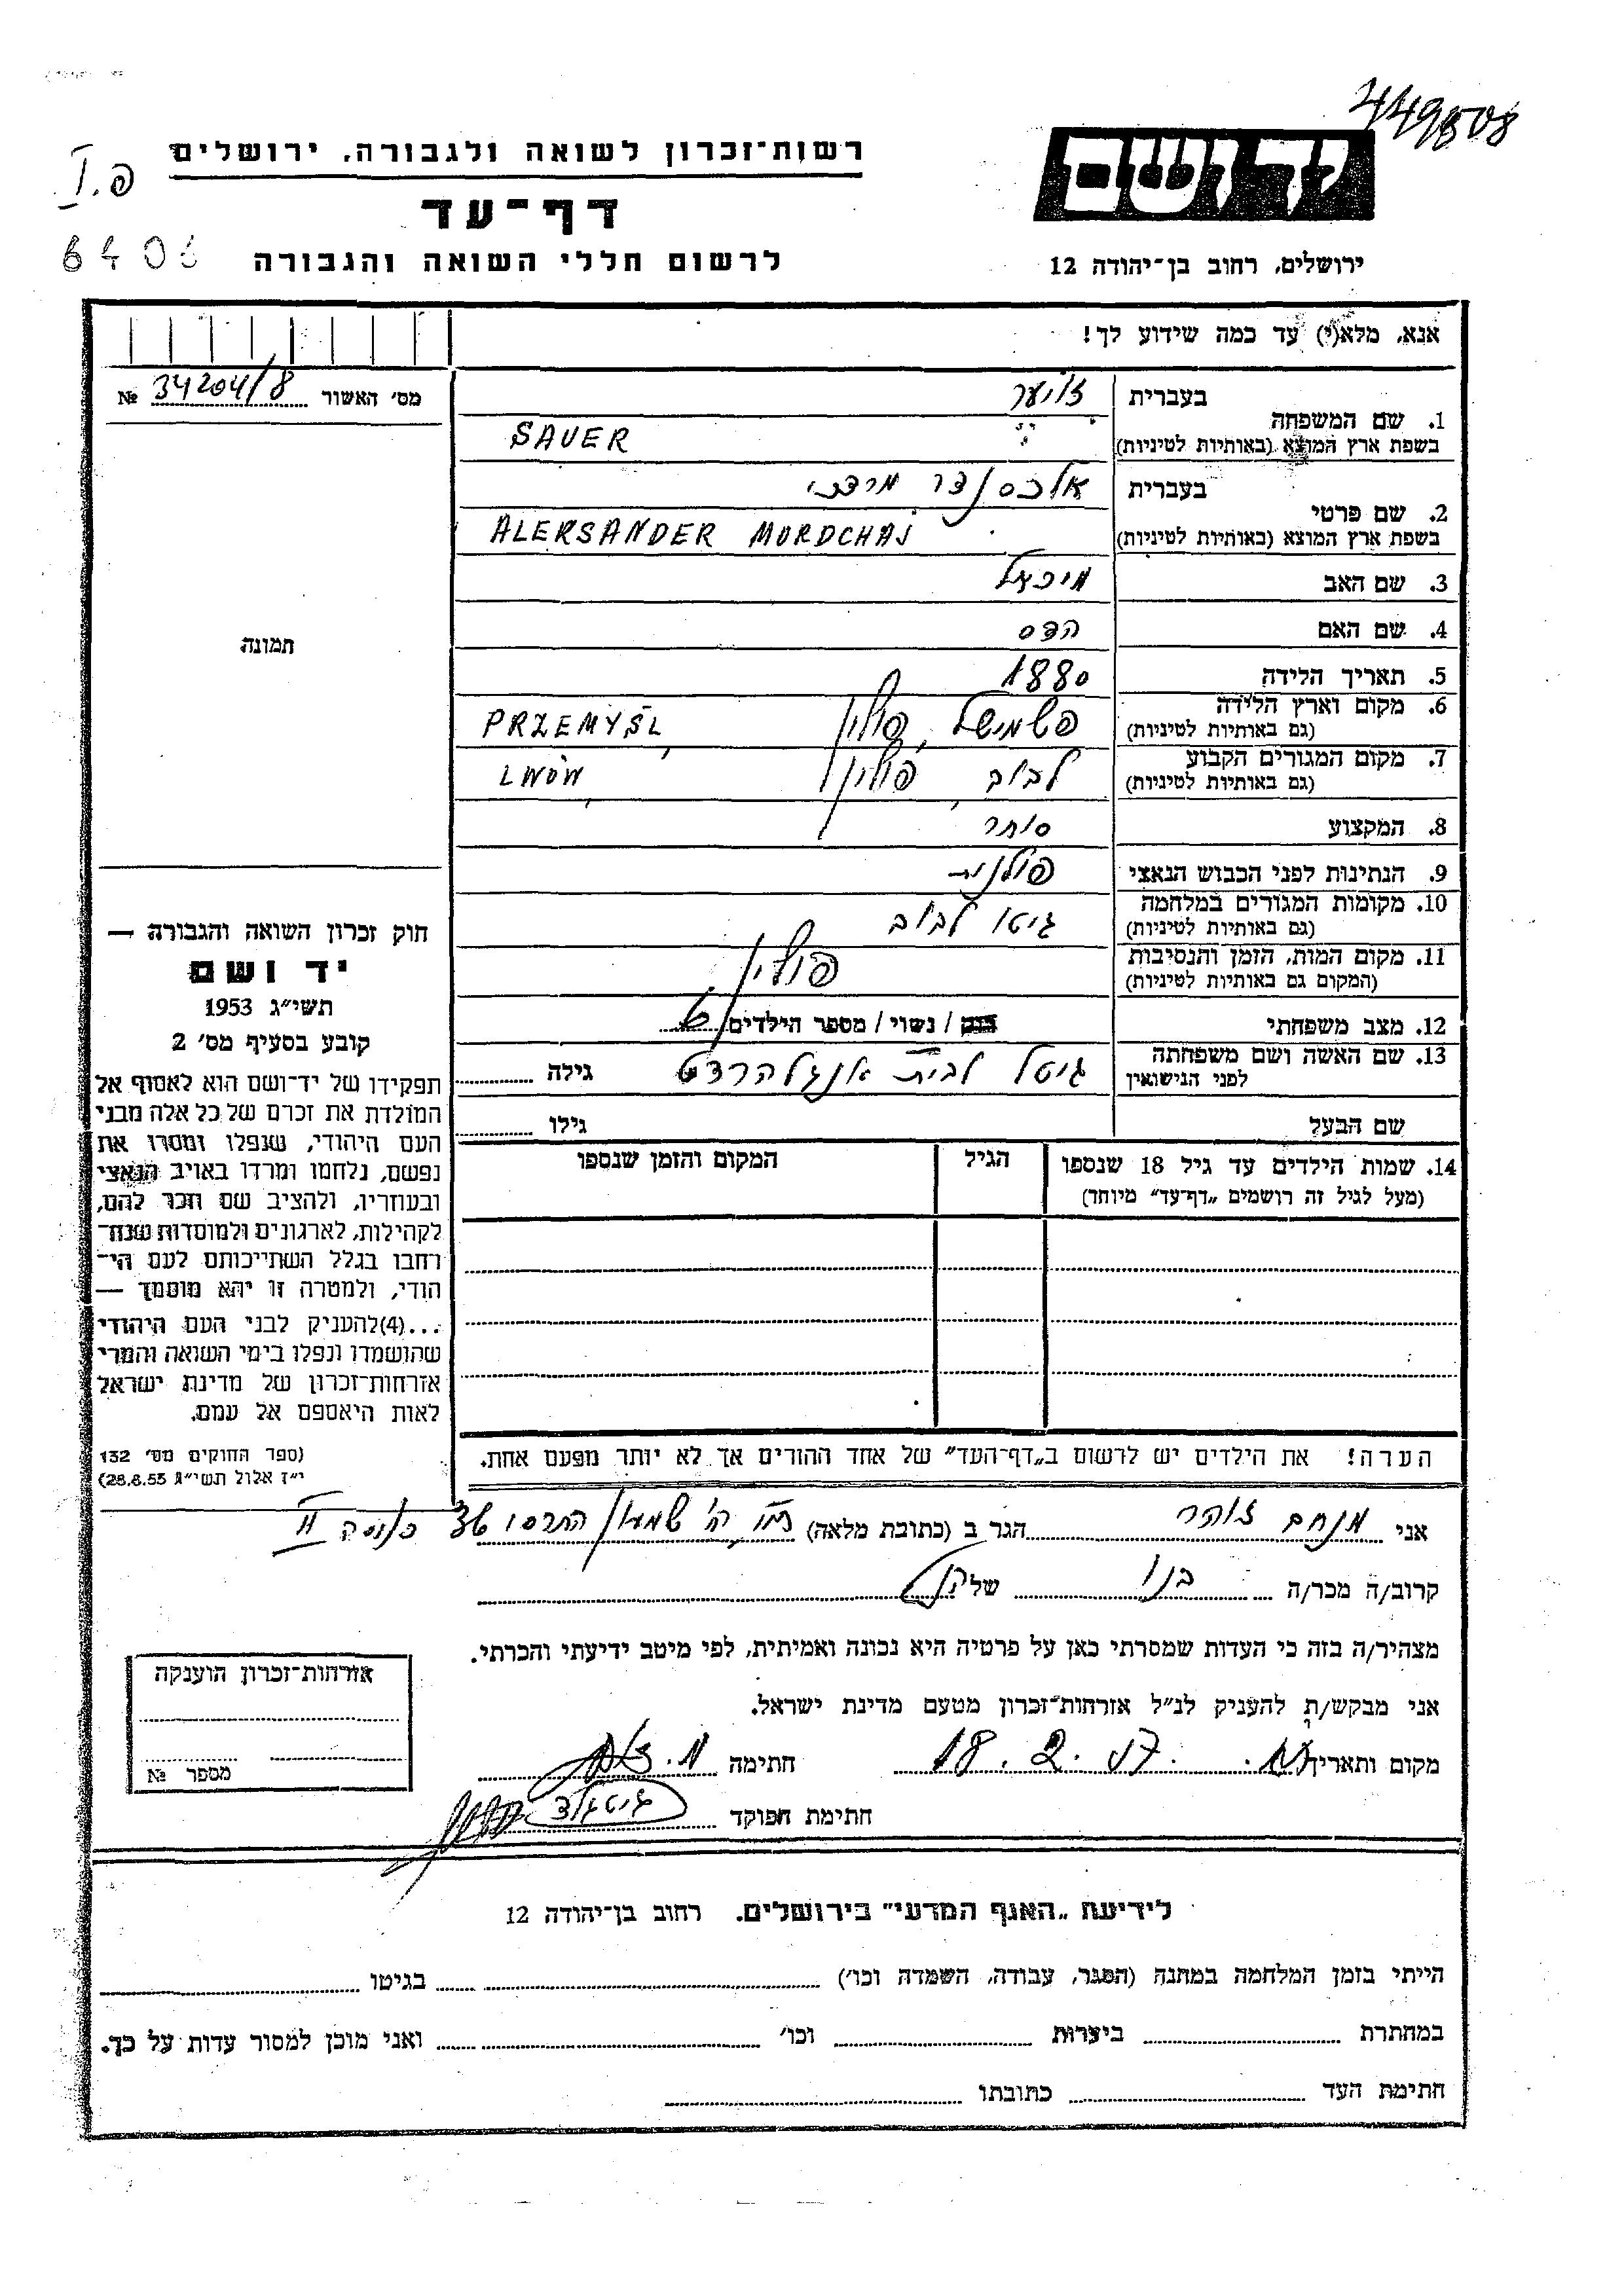 449508
יד ושם
ירושלים, רחוב בן־יהודה 12
רשות־זכרון לשואה ולגבורה, ירושלים
דף־עד
לרשום חללי השואה והגבורה
פ.I
6406
אנא, מלא(י) עד כמה שידוע לך!
מס׳ האשור 34204/8 №
תמונה
1. שם המשפחה
בעברית זויער
בשפת ארץ המוצא (באותיות לטיניות) SAUER
2. שם פרטי
בעברית אלכסנדר מרדכי
בשפת ארץ המוצא (באותיות לטיניות) ALERSANDER MORDCHAJ
3. שם האב מיכאל
4. שם האם הדס
5. תאריך הלידה 1880
6. מקום וארץ הלידה
(גם באותיות לטיניות) פשמישל, פולין PRZEMYŚL
7. מקום המגורים הקבוע
(גם באותיות לטיניות) לבוב, פולין LWÓW
8. המקצוע סוחר
9. הנתינות לפני הכבוש הנאצי פולנית
10. מקומות המגורים במלחמה
(גם באותיות לטיניות) גיטו לבוב
11. מקום המות, הזמן והנסיבות
(המקום גם באותיות לטיניות) פולין
12. מצב משפחתי רוק / נשוי / מספר הילדים
13. שם האשה ושם משפחתה
לפני הנישואין גיטל לבית אנגלהרדט גילה
שם הבעל גילו
14. שמות הילדים עד גיל 18 שנספו הגיל המקום והזמן שנספו
(מעל לגיל זה רושמים „דף־עד" מיוחד)
הערה! את הילדים יש לרשום ב„דף־העד" של אחד ההורים אך לא יותר מפעם אחת.
חוק זכרון השואה והגבורה —
יד ושם
תשי״ג 1953
קובע בסעיף מס׳ 2
תפקידו של יד־ושם הוא לאסוף אל
המולדת את זכרם של כל אלה מבני
העם היהודי, שנפלו ומסרו את
נפשם, נלחמו ומרדו באויב הנאצי
ובעוזריו, ולהציב שם וזכר להם,
לקהילות, לארגונים ולמוסדות שנח־
רבו בגלל השתייכותם לעם הי־
הודי, ולמטרה זו יהא מוסמך —
...(4)להעניק לבני העם היהודי
שהושמדו ונפלו בימי השואה והמרי
אזרחות־זכרון של מדינת ישראל
לאות היאספם אל עמם.
(ספר החוקים מס׳ 132
י״ז אלול תשי״ג 28.8.53)
אני מנחם זוהר הגר ב (כתובת מלאה) שמעון התרסי כניסה II
קרוב/ה מכר/ה בנו של
מצהיר/ה בזה כי העדות שמסרתי כאן על פרטיה היא נכונה ואמיתית, לפי מיטב ידיעתי והכרתי.
אני מבקש/ת להעניק לנ״ל אזרחות־זכרון מטעם מדינת ישראל.
מקום ותאריך 18.2.57 חתימה
חתימת הפוקד
אזרחות־זכרון הוענקה
מספר №
לידיעת „האגף המדעי" בירושלים, רחוב בן־יהודה 12
הייתי בזמן המלחמה במחנה (הסגר, עבודה, השמדה וכו׳) בגיטו
במחתרת ביערות וכו׳ ואני מוכן למסור עדות על כך.
חתימת העד כתובתו